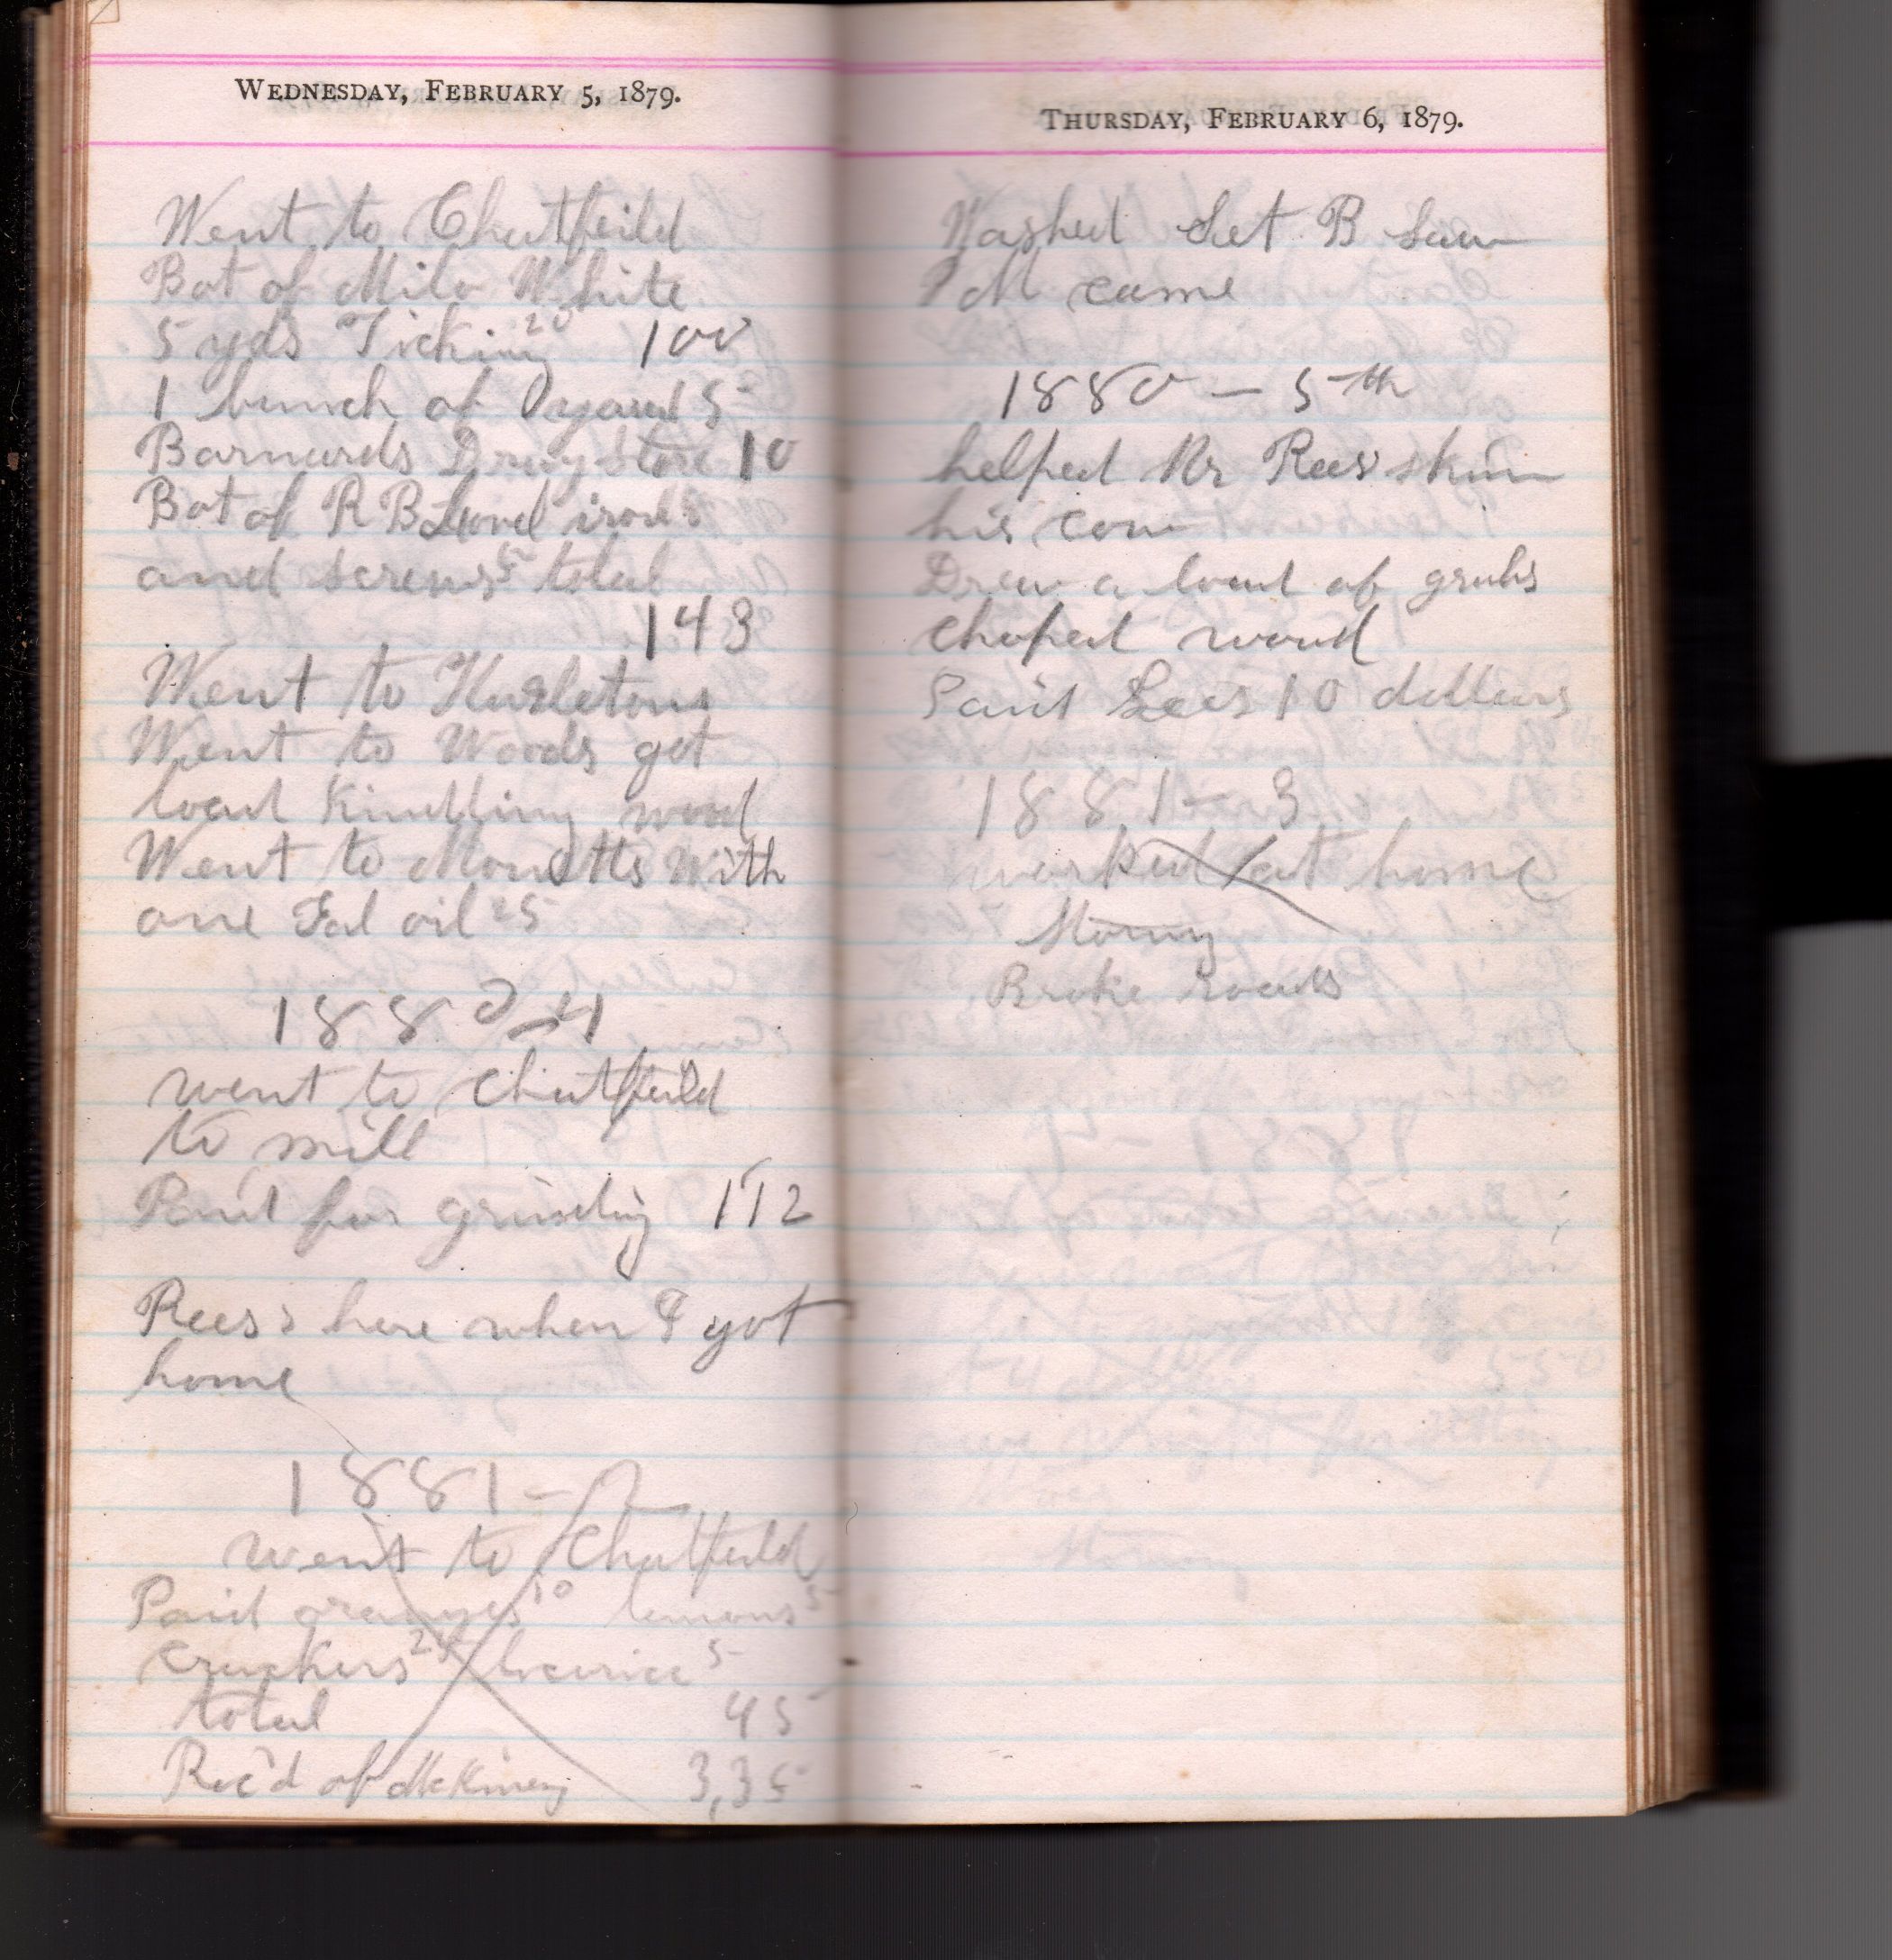 WEDNESDAY, FEBRUARY 5, 1879.
Went to Chatfeild
Bot of Milo White
5 yds Ticking 20 100
1 bunch of yarn 15
Barnards Drug Store 10
Bot of R B irons
and screws total
143
Went to Hazletons
Went to Woods got
load Kindling wood
Went to With
one Gal oil 25
1880 - 4
went to Chatfeild
to mill
Paid for grinding 112
Rees's here when I got
home
1881 - 2
went to Chatfeild
Paid oranges 10 lemons 5
crackers 25 licorice 5
total 45
Rec'd of McKiney 3,35
THURSDAY, FEBRUARY 6, 1879.
Washed Set B Saw
P M came
1880 - 5th
helped Mr Rees skin
his cow
Drew a load of grubs
choped wood
Paid Lees 10 dollars
1881 - 3
worked at home
Stormy
Broke roads